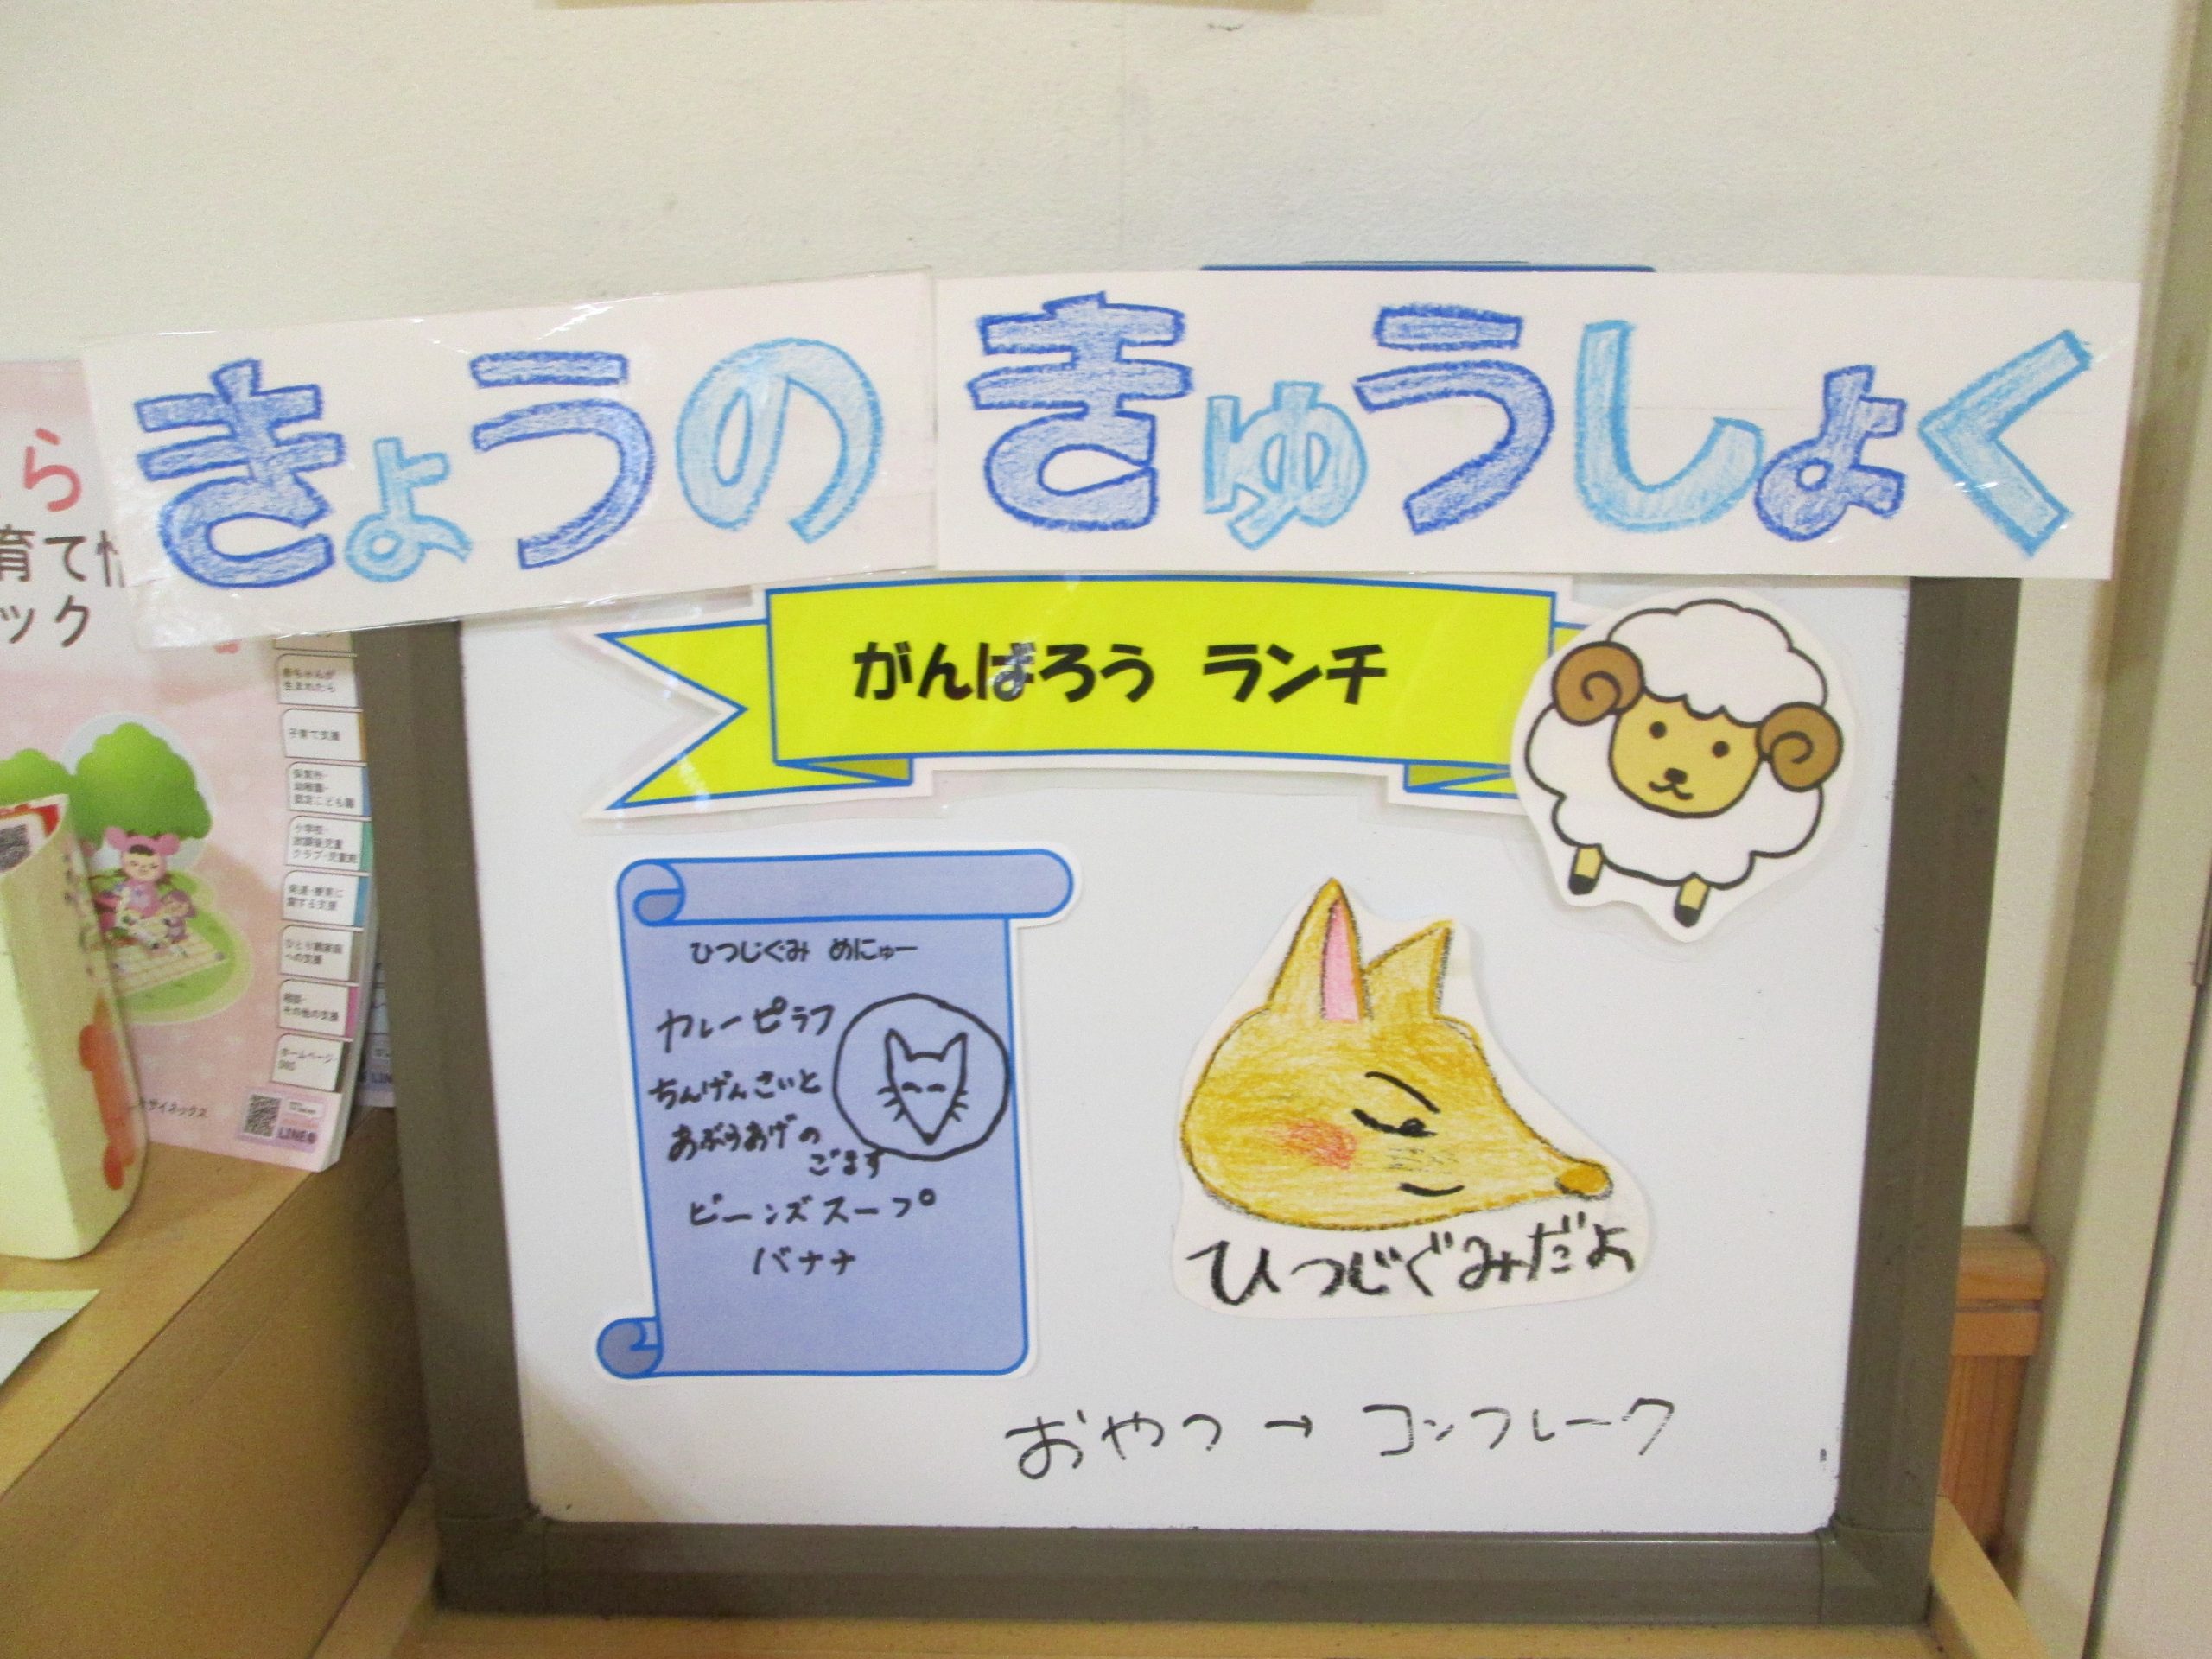 きょうの きゅうしょく
がんばろう ランチ
ひつじぐみ めにゅー
カレーピラフ
ちんげんさいと
あぶらあげの
ごます
ビーンズスープ
バナナ
ひつじぐみだよ
おやつ → コーンフレーク
ら
育て情
ック
赤ちゃんが
生まれたら
子育て支援
保育所・
幼稚園・
認定こども園
小学校・
放課後児童
クラブ・児童館
発達・療育に
関する支援
ひとり親家庭
への支援
相談・
その他の支援
ホームページ・
SNS
サイネックス
LINE